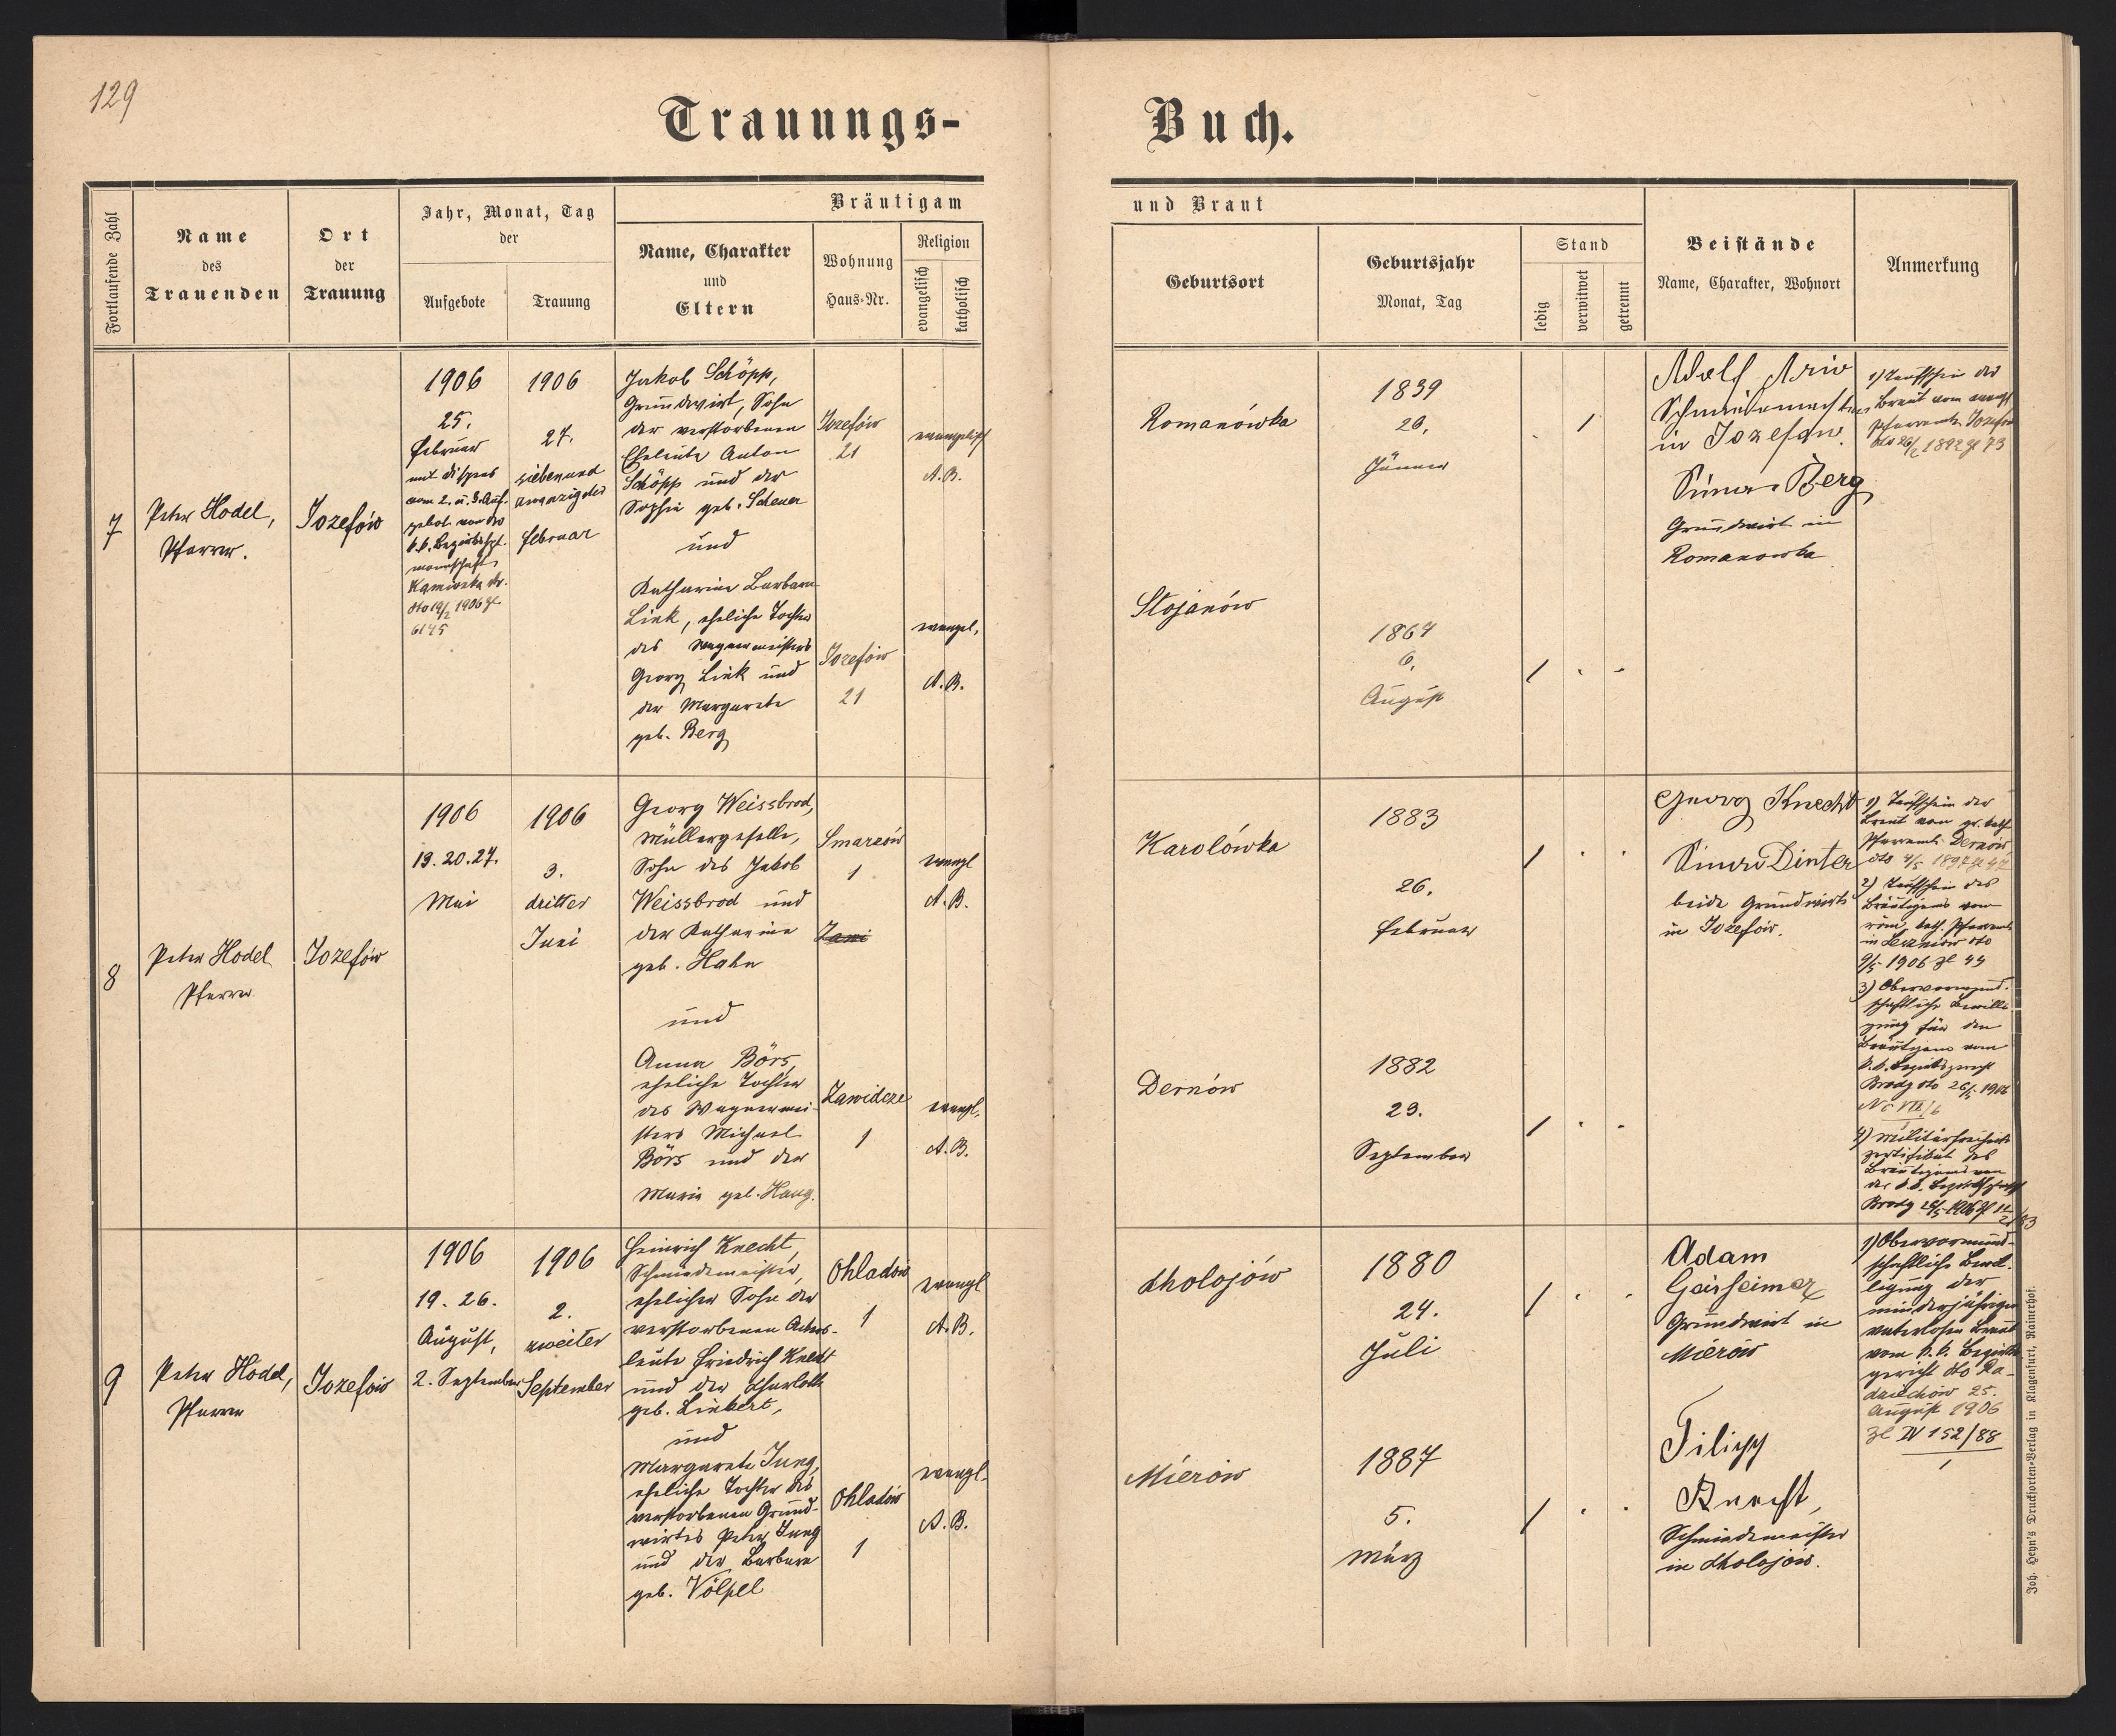 129
Trauungs-
Buch.
Fortlaufende Zahl
Name
des
Trauenden
Ort
der
Trauung
Jahr, Monat, Tag
der
Aufgebote
Trauung
Bräutigam
Name, Charakter
und
Eltern
Wohnung
Haus-Nr.
Religion
evangelisch
katholisch
und Braut
Geburtsort
Geburtsjahr
Monat, Tag
Stand
ledig
verwitwet
getrennt
Beistände
Name, Charakter, Wohnort
Anmerkung
7
Peter Hodel,
Pfarrer.
Jozefów
1906
25.
Februar
mit Dispens
vom 2. u. 3. Auf-
gebot von der
k.k. Bezirkshpt.
mannschaft
Kamionka str.
dto 19/2 1906 Zl
6145
1906
27.
siebenund
zwanzigster
Februar
Jakob Schöpp,
Grundwirt, Sohn
der verstorbenen
Eheleute Anton
Schöpp und der
Sophie geb. Scheuer
und
Katharine Barbara
Link, eheliche Tochter
des Wagnermeisters
Georg Link und
der Margarete
geb. Berg
Jozefów
21
evangelisch
A.B.
Jozefów
21
evangel.
A.B.
Romanówka
1839
26.
Jänner
Stojanów
1864
6.
August
Adolf
Schmiedemeister
in Jozefow.
Berg
Grundwirt in
Romanowka
1) Taufschein der
Braut vom evang.
Pfarramte Jozefów
dto 26/2 1892 Zl 73
8
Peter Hodel
Pfarrer
Jozefów
1906
13. 20. 27.
Mai
1906
3.
dritter
Juni
Georg Weissbrod,
Müllergeselle,
Sohn des Jakob
Weissbrod und
der Katharine
geb. Hahn
und
Anna Börs,
eheliche Tochter
des Wagnermei-
sters Michael
Börs und der
Marie geb. Haug.
Smarzów
1
Zawi
evangl
A.B.
Zawidcze
1
evangl.
A.B.
Karolówka
1883
26.
Februar
Dernów
1882
23.
September
Georg Knecht
Simon Dinter
beide Grundwirte
in Jozefów.
1) Taufschein der
Braut vom gr. kath.
Pfarramte Dernów
2) Taufschein des
Bräutigams vom
röm. kath. Pfarramte
in Leszniów dto
9/5 1906 Zl 44
3) Obervormund-
schaftliche Bewilli-
gung für den
Bräutigam vom
k.k. Bezirksgericht
Brody dto 26/5 1906
4) Militärfreiheits
zertifikat des
Bräutigams von
der k.k.
Brody
9
Peter Hodel,
Pfarrer
Jozefów
1906
19. 26.
August,
2. September
1906
2.
zweiter
September
Heinrich Knecht,
Schmiedemeister,
ehelicher Sohn der
verstorbenen Ackers-
leute Friedrich Knecht
und der Charlotte
geb. Linkert,
und
Margarete Jung,
eheliche Tochter des
verstorbenen Grund-
wirtes Peter Jung
und der Barbara
geb. Völpel
Ohladów
1
evangl
A.B.
Ohladów
1
evangl.
A.B.
Cholojów
1880
24.
Juli
Mierów
1887
5.
März
Adam
Geisheimer
Grundwirt in
Mierów
Filipp
Knecht,
Schmiedemeister
in Cholojów.
1) Obervormund-
schaftliche Bewil-
ligung der
minderjährigen
vaterlosen Braut
vom k.k. Bezirks
gericht dto Ra-
dziechów 25.
August 1906
Zl IV 152/88
Joh. Heyn's Drucksorten-Verlag in Klagenfurt, Rainerhof.